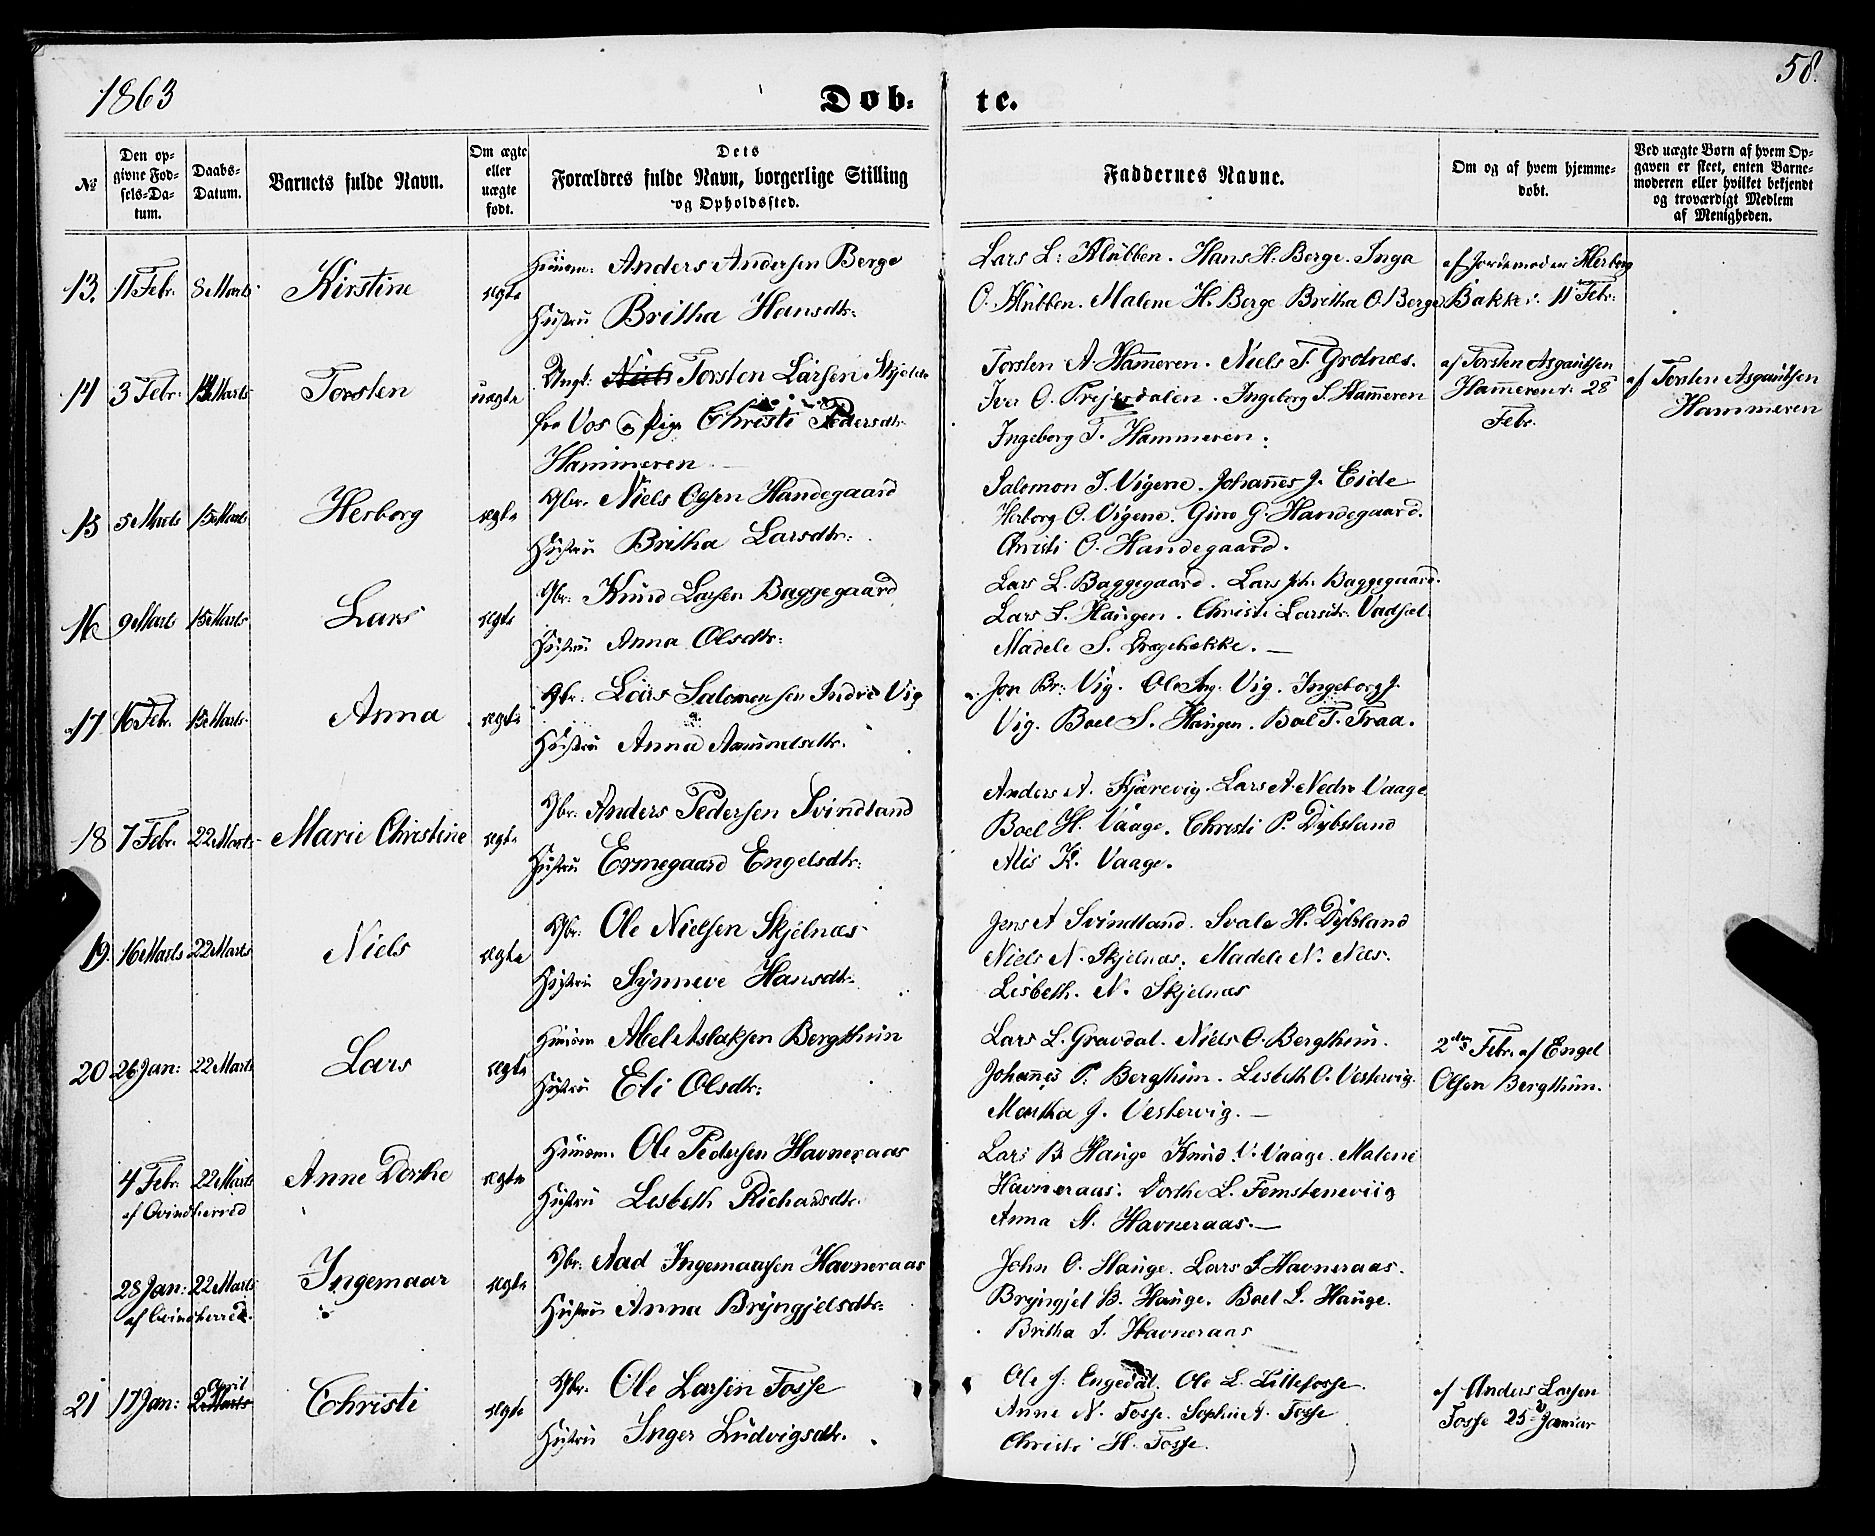 1863
58.
Døb-
te.
№
Den op-
givne Fød-
sels-Da-
tum.
Daabs-
Datum.
Barnets fulde Navn.
Om ægte
eller
uægte
født.
Dets
Forældres fulde Navn, borgerlige Stilling
og Opholdssted.
Faddernes Navne.
Om og af hvem hjemme-
døbt.
Ved uægte Børn af hvem Op-
gaven er skeet, enten Barne-
moderen eller hvilket bekjendt
og troværdigt Medlem
af Menigheden.
13. 11 Febr. 8 Marts Kirstine ægte
Huusm: Anders Andersen Berge
Hustru Britha Hansdtr:
Lars L: Klubben. Hans H. Berge. Inga
O. Klubben. Malene H. Berge Britha O. Berge
af Jordemoder Herborg
Bakke 11 Febr:
14 3 Febr: 15 Marts Torsten uægte
Ungk: Niels Torsten Larsen Skjelde
fra Vos og Pige Christi Pedersdtr
Hammeren
Torsten A. Hammeren. Niels T. Grotnæs.
Iver O. Trejerdalen. Ingeborg S. Hammeren
Ingeborg T. Hammeren:
af Torsten Asgautsen
Hammeren 28
Febr.
af Torsten Asgautsen
Hammeren
15 5 Marts 15 Marts Herborg ægte
Gbr. Niels Olsen Handegaard
Hustru Britha Larsdtr:
Salemon T. Vigene. Johannes J. Eide
Herborg O. Vigene. Guro G. Handegaard.
Christi O. Handegaard.
16 9 Marts 15 Marts Lars ægte
Gbr: Knud Larsen Baggegaard
Hustru Anna Olsdtr:
Lars L. Baggegaard. Lars Joh. Baggegaard.
Lars L. Haugen. Christi Larsdtr. Vadsel
Madele S. Dragebække.
17 16 Febr. 15 Marts Anna ægte
Gbr. Lars Salomonsen Indre Vig
Hustru Anna Aamundsdtr.
Jon Br: Vig. Ole Ing. Vig. Ingeborg J.
Vig. Boel S. Haugen. Boel T. Traa.
18 7 Febr. 22 Marts Marie Christine ægte
Gbr: Anders Pedersen Svindland
Hustru Ermegaard Engelsdtr:
Anders A. Kjærevig. Lars A. Nedre Vaage
Boel H. Vaage. Christi P. Dybsland
Alis K. Vaage.
19. 16 Marts 22 Marts Niels ægte
Gbr. Ole Nielsen Skjelnæs
Hustru Synneve Hansdtr
Jens A Svindland. Svale H. Dybsland
Niels N. Skjelnæs. Madele N. Næs.
Lisbeth. N. Skjelnæs
20 26 Jan: 22 Marts Lars ægte
Huusm Abel Aslaksen Bergthun
Hustru Eli Olsdtr:
Lars L. Gravdal. Niels O. Bergthun.
Johannes P. Bergthun. Lesbeth O. Vestervig.
Martha J. Vestervig.
2den Febr. af Engel
Olsen Bergthun.
4 Febr. 22 Marts Anne Dorthe ægte
af Qvindherred
Huusm. Ole Pedersen Havneraas
Hustru Lesbeth Richardsdtr
Lars B Hauge Knud V. Vaage. Malene
Havneraas. Dorthe L. Femsteneviig
Anna N. Havneraas.
28 Jan: 22 Marts Ingemaar ægte
af Qvindherred.
Gbr: Aad Ingemarsen Havneraas
Hustru Anna Bryngjelsdtr:
John O. Hauge. Lars L Havneraas.
Bryngjel B. Hauge. Boel L. Hauge.
Britha I. Havneraas
April
21 17 Jan: 2 Marts Christi ægte
Gbr. Ole Larsen Fosse
Hustru Inger Ludvigsdtr.
Ole J. Engedal. Ole L. Lillefosse.
Anne N. Fosse. Sophie A. Fosse
Christi H. Fosse.
af Anders Larsen
Fosse 25 Januar